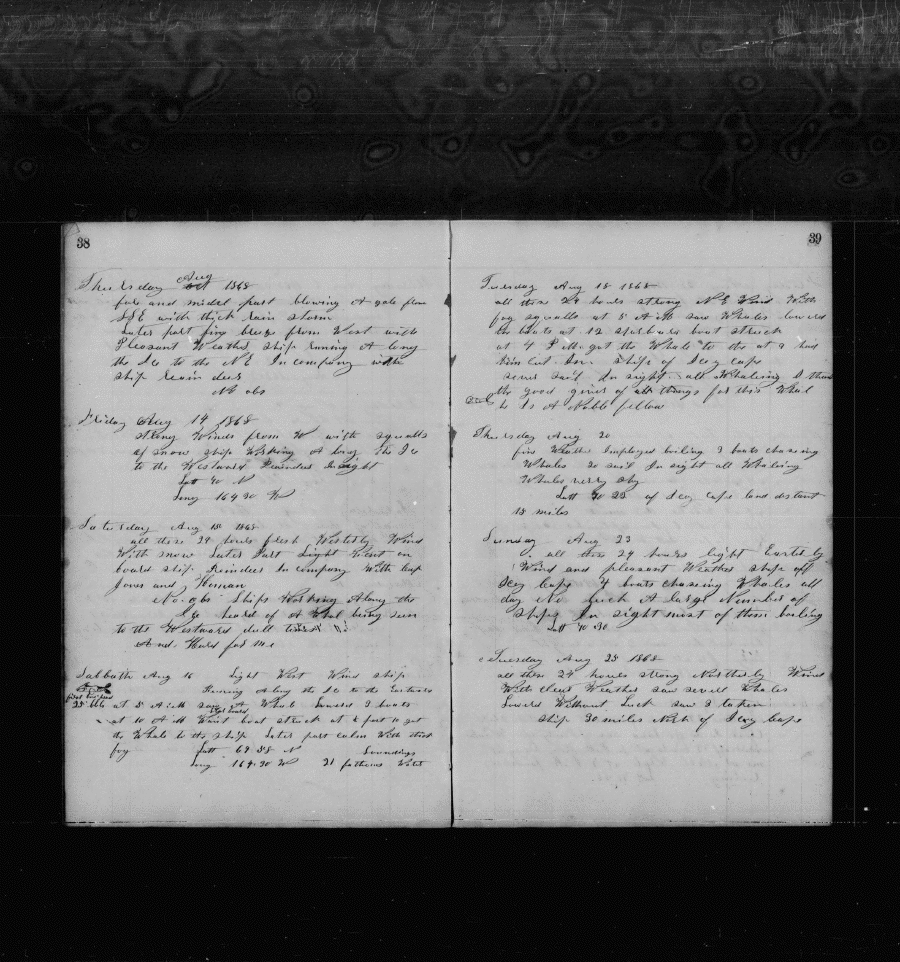 38
Thursday Aug 1868
fore and midel part blowing A gale from
SSE with thick rain storm
Later part fine breeze from West with
Pleasant Weather ship running A long
the Ice to the N E In company with
ship Rain deer
No obs
Friday Aug 14 1868
strong Winds from W with squalls
of snow ship Working A long the Ice
to the Westward Raindeer In sight
Latt 70 N
Long 164 30 W
Saturday Aug 15 1868
all these 24 hours fresh Westerly Wind
With snow Later Part Light Went on
board ship Reindeer In company With Capt
Jones and
No obs Ships Working Along the
Ice heard of A Whal being seen
to the Westward dull times
And Hard for me
Sabbath Aug 16 Light West Wind ship
Runing A long the Ice to the Eastward
25 bbls at 5 A M saw Whale Lowerd 3 boats
at 10 A M Waist boat struck at ½ past 10 got
the Whale to the ship Later part calm With thick
fog Latt 69 58 N Soundings
Long 164 30 W 21 fathoms Water
39
Tuesday Aug 18 1868
all these 24 hours strong N E Wind With
fog squalls at 5 A M saw Whales lowerd
boats at 12 Starboard boat struck
at 4 P M got the Whale to the at 9 had
him Cut In ship of Icy cape
seven sail In sight all Whaleing I thank
the good giver of all things for this Whal
he Is A Noble fellow
Thursday Aug 20
fine Weather Employed boiling 3 boats chaseing
Whales 20 sail In sight all Whaleing
Whales verry shy
Latt 70 23 of Icy cape land distant
18 miles
Sunday Aug 23
all these 24 hours light Easterly
Wind and pleasant Weather ship off
Icy Cape 4 boats chaseing Whales all
day No luck A large Number of
ships In sight most of them boiling
Latt 70 30
Tuesday Aug 25 1868
all these 24 hours strong Northerly Wind
With clear Weather saw severl Whales
Lowerd Without Luck saw 2 taken
Ship 30 miles North of Icy Cape